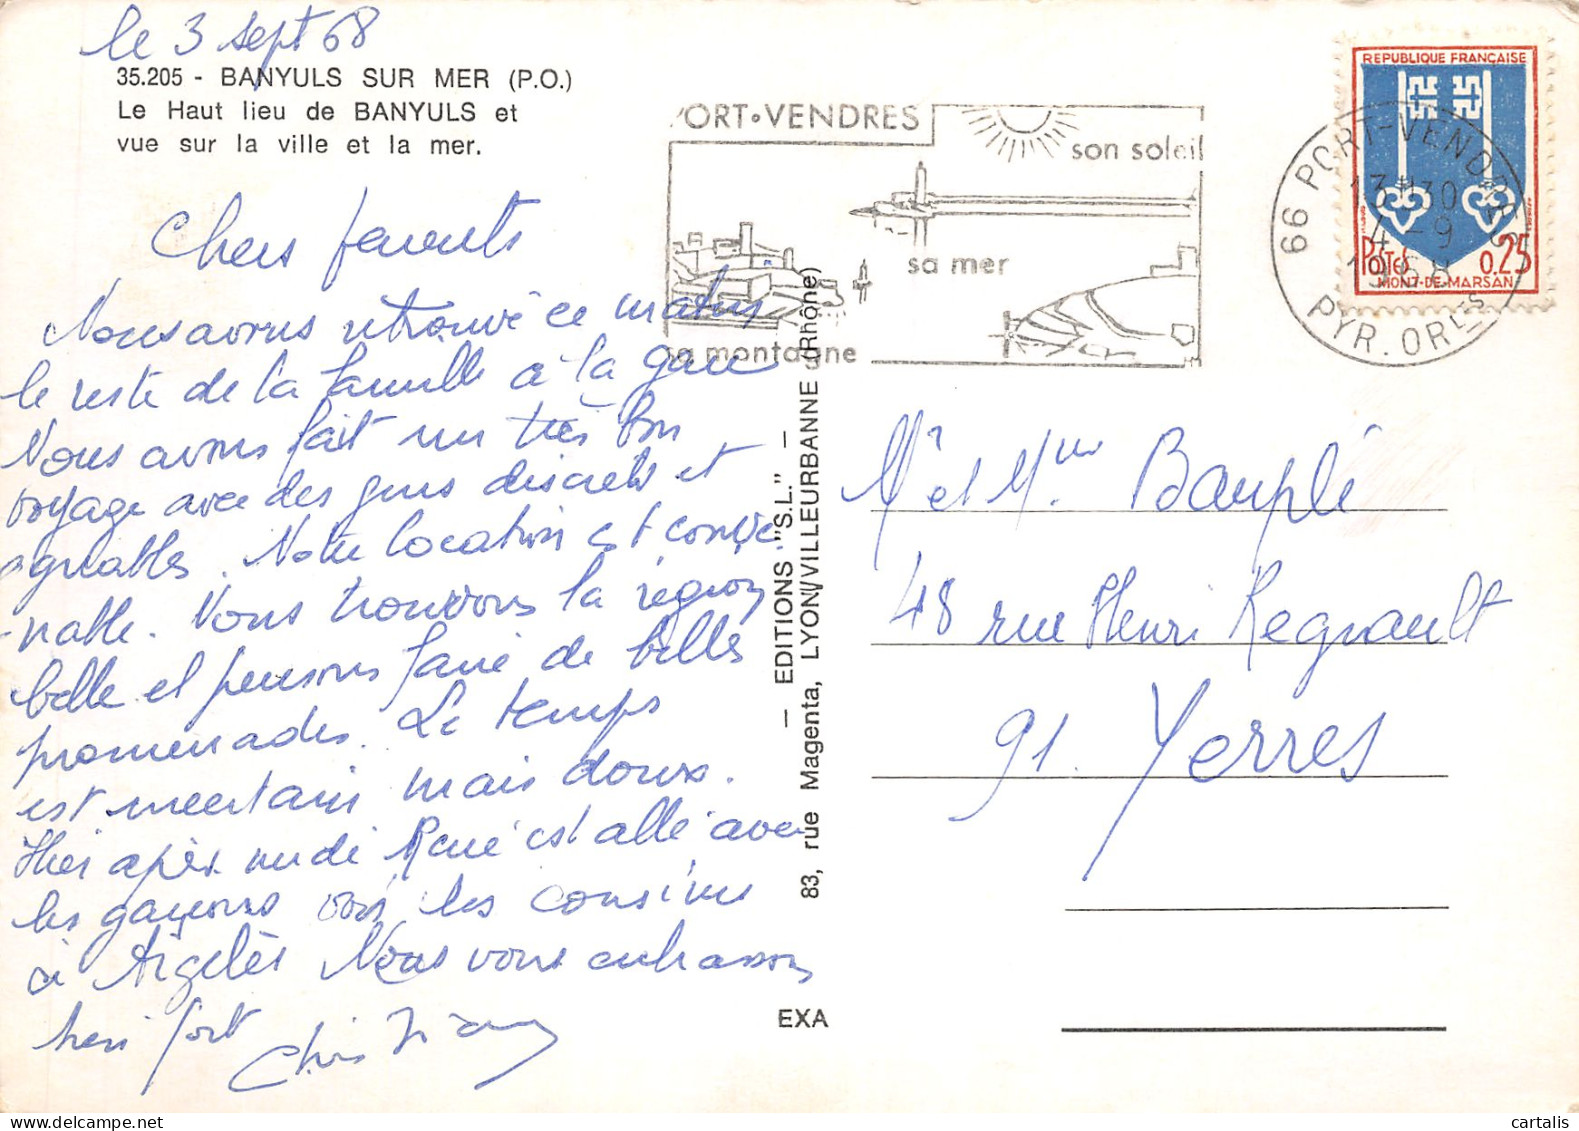 le 3 sept 68
35.205 - BANYULS SUR MER (P.O.)
Le Haut lieu de BANYULS et
vue sur la ville et la mer.
Chers parents
Nous avons retrouvé ce matin
le reste de la famille à la gare
Nous avons fait un très bon
voyage avec des gens discrets et
agréables. Notre location est conve
-nable. Nous trouvons la région
belle et pensons faire de belles
promenades. Le temps
est incertain mais doux.
Hier après midi René est allé avec
les garçons voir les cousins
à Argelès Nous vous embrassons
bien fort
Christiane
PORT•VENDRES
son soleil
sa mer
sa montagne
66 PORT-VENDRES
13H30
4-9
1968
PYR. ORLES
REPUBLIQUE FRANÇAISE
Postes 0.25
MONT-DE-MARSAN
— EDITIONS "S.L." —
83, rue Magenta, LYON/VILLEURBANNE (Rhône)
EXA
Mr et Mme Bauplé
48 rue Henri Regnault
91. Yerres
cartalis